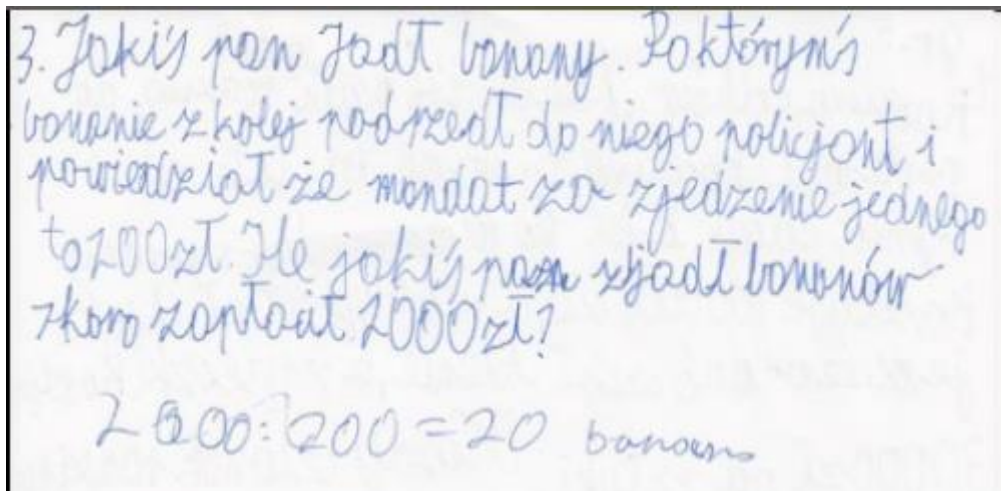 3. Jakiś pan Jadł banany. Po którymś
bananie z kolej podrzedł do niego policjant i
powiedział że mandat za zjedzenie jednego
to 200zł. Ile jakiś pan zjadł bananów
skoro zapłacił 2000zł?
2000:200=20 banan